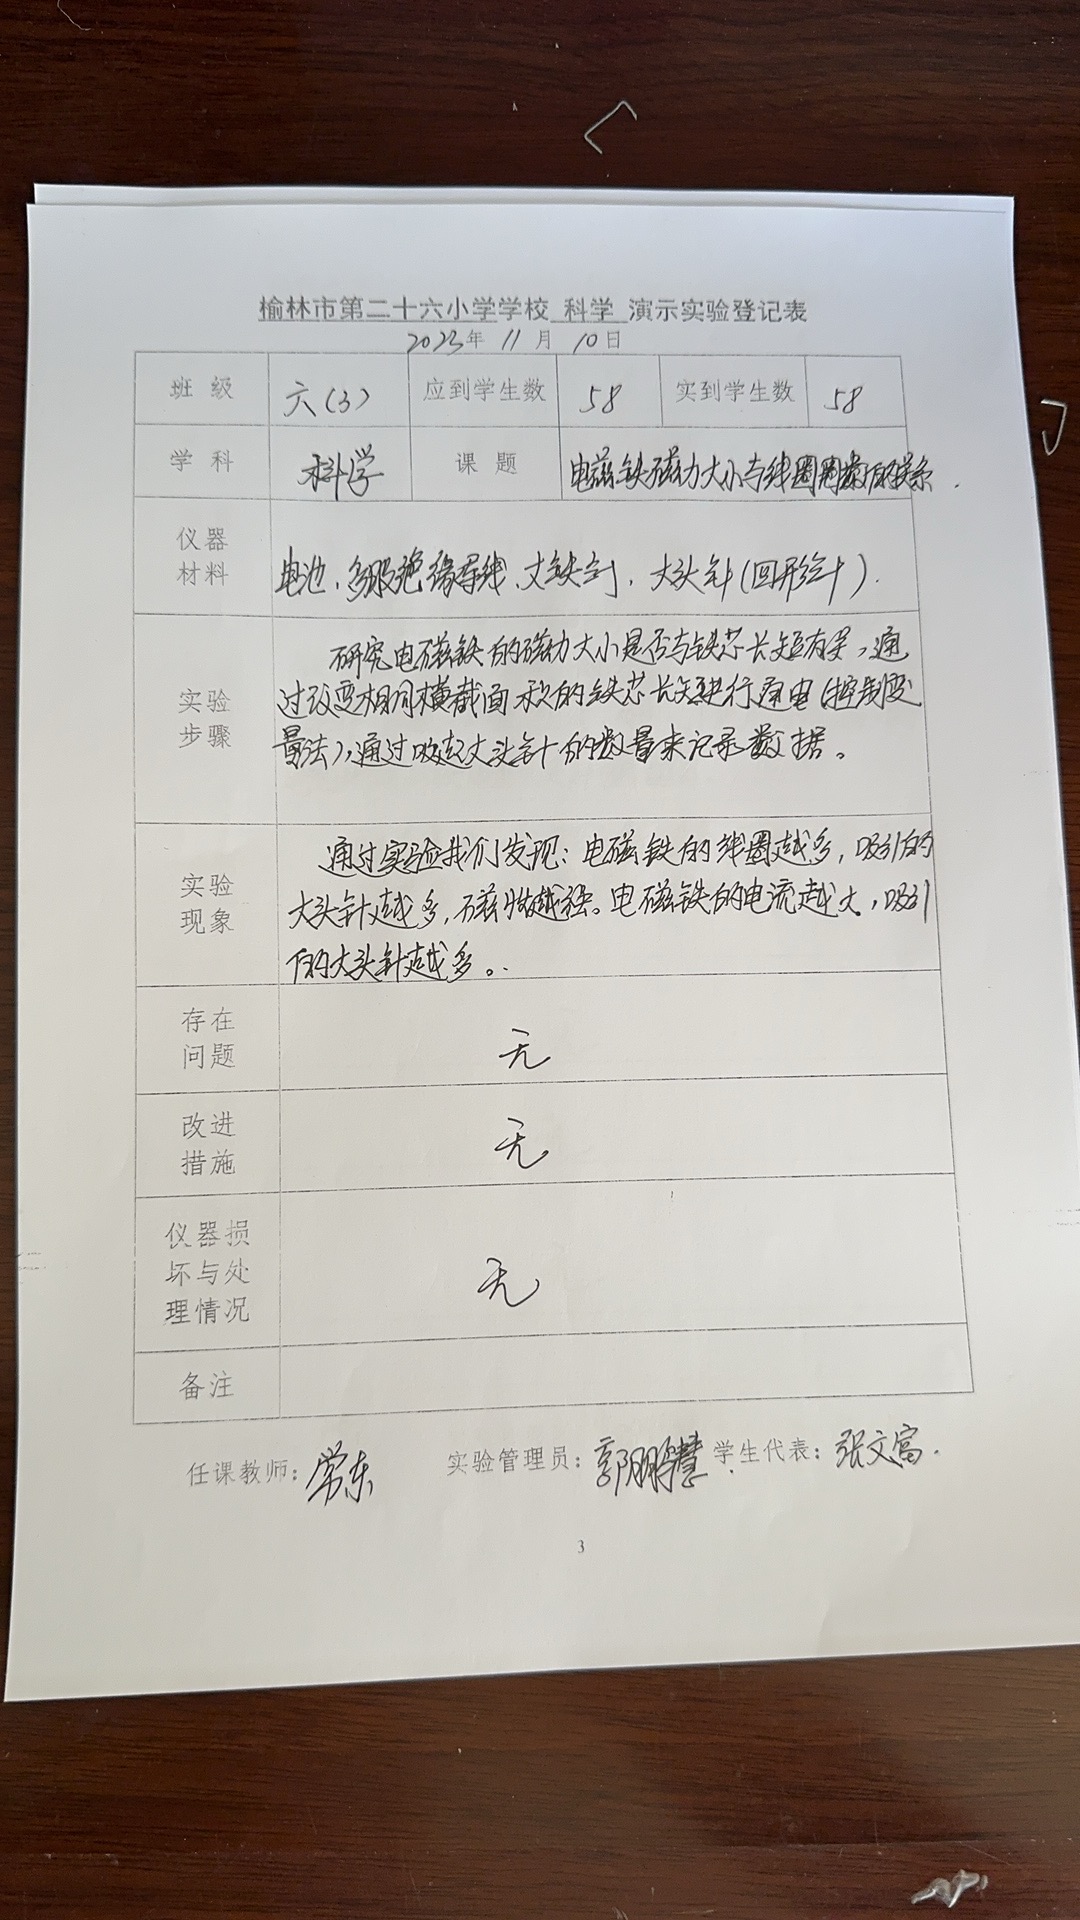 榆林市第二十六小学学校 科学 演示实验登记表
2023年 11月 10日
班级 六(3) 应到学生数 58 实到学生数 58
学科 科学 课题 电磁铁磁力大小与线圈圈数的关系.
仪器材料 电池、多股绝缘导线、大铁钉、大头针(回形针).
实验步骤
研究电磁铁的磁力大小是否与铁芯长短有关,通
过改变相同横截面积的铁芯长短进行通电(控制变
量法),通过吸起大头针的数量来记录数据。
实验现象
通过实验我们发现:电磁铁的线圈越多,吸引的
大头针越多,磁性越强。电磁铁的电流越大,吸引
的大头针越多。
存在问题 无
改进措施 无
仪器损坏与处理情况 无
备注
任课教师:常东 实验管理员:郭鹏慧 学生代表:张文富.
3